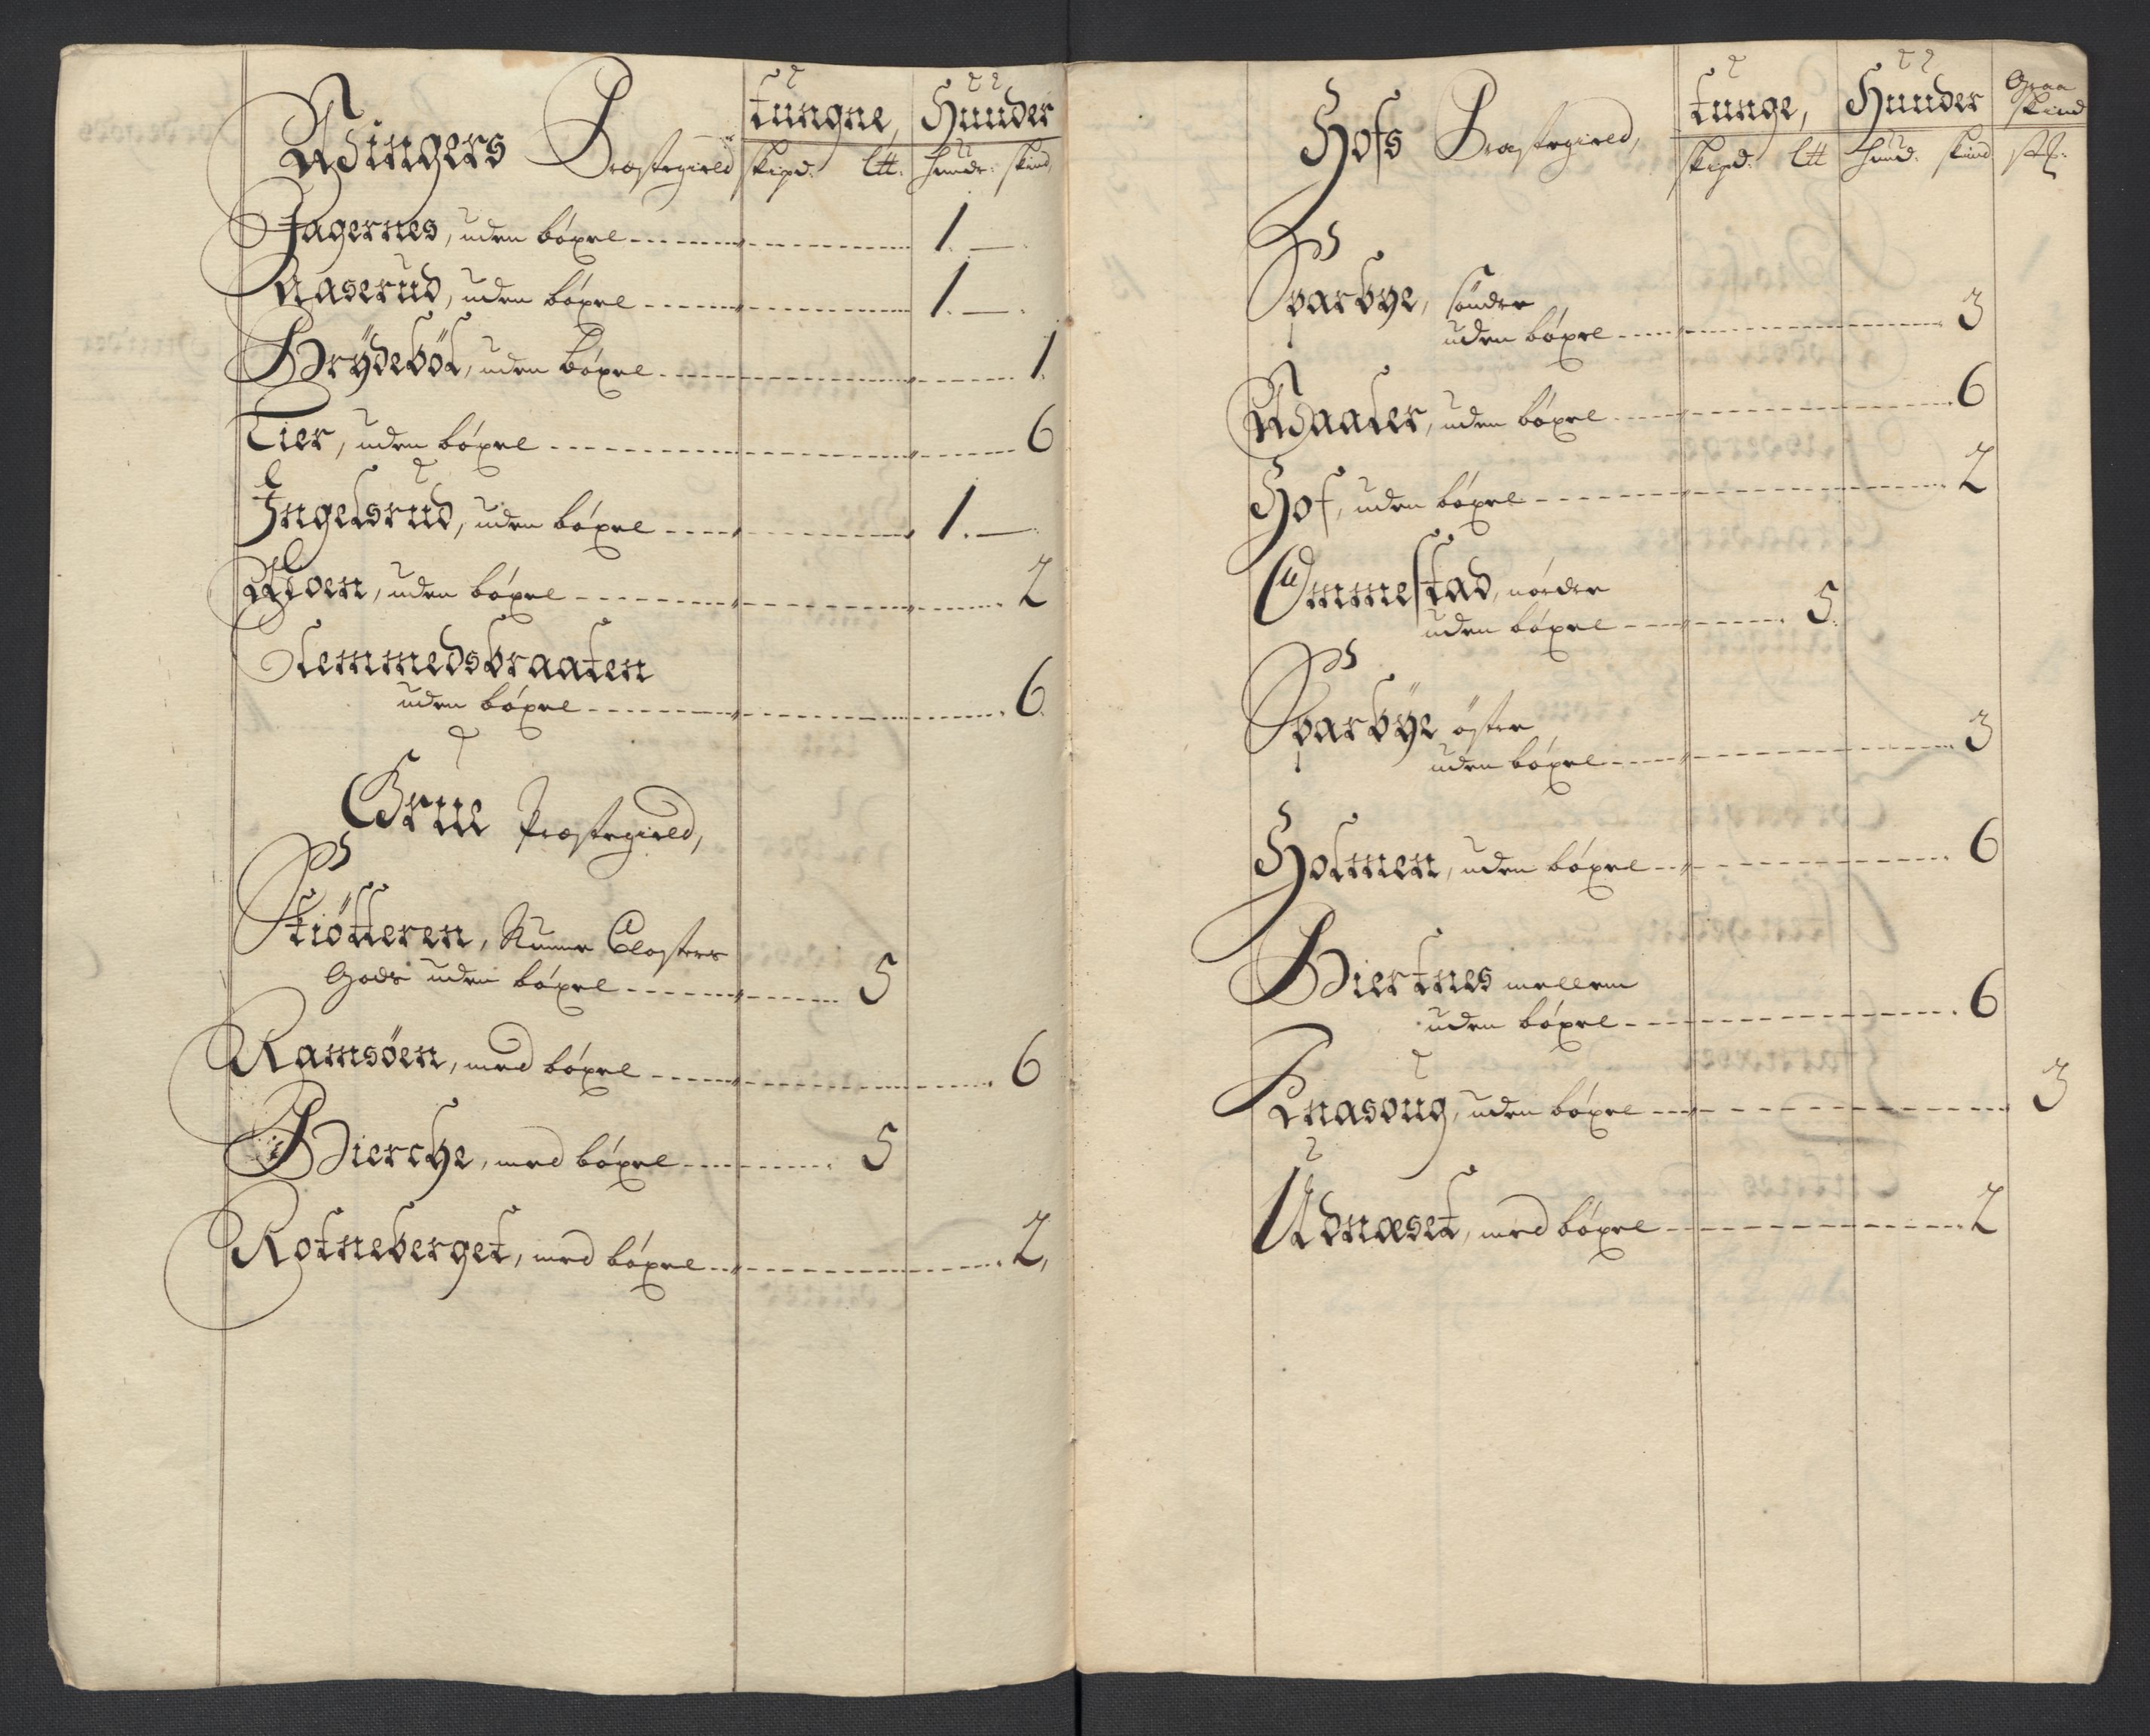 Wingers Præstegield
tungne, Huuder
skipd: Ltt. Huudr: skind,
Jagernes, uden böxel 1. —
Aaserud, uden böxel 1. —
Brÿdeböl, uden böxel 1.
Tier, uden böxel 6
Ingelsrud, uden böxel 1. —
Moen, uden böxel 2
Klemmedsbraaten
uden böxel 6.
Grue Præstegield,
Skiötteren, Nunne Closters
Gods uden böxel 5
Ramsöen, med böxel 6
Bierche, med böxel 5
Rotneberget, med böxel 2,
Hofs Præstegield,
tunge, Huuder Graa skind
skipd: Ltt Huud: skind
Sparbye, sönder
uden böxel 3
Waaler, uden böxel 6
Hof, uden böxel 2
Ommestad, nörder
uden böxel 5.
Sparbÿe öster
uden böxel 3
Holmen, uden böxel 6
Biertnes mellem
uden böxel 6
Knasoug, uden böxel 3
Udnæset, med böxel 2